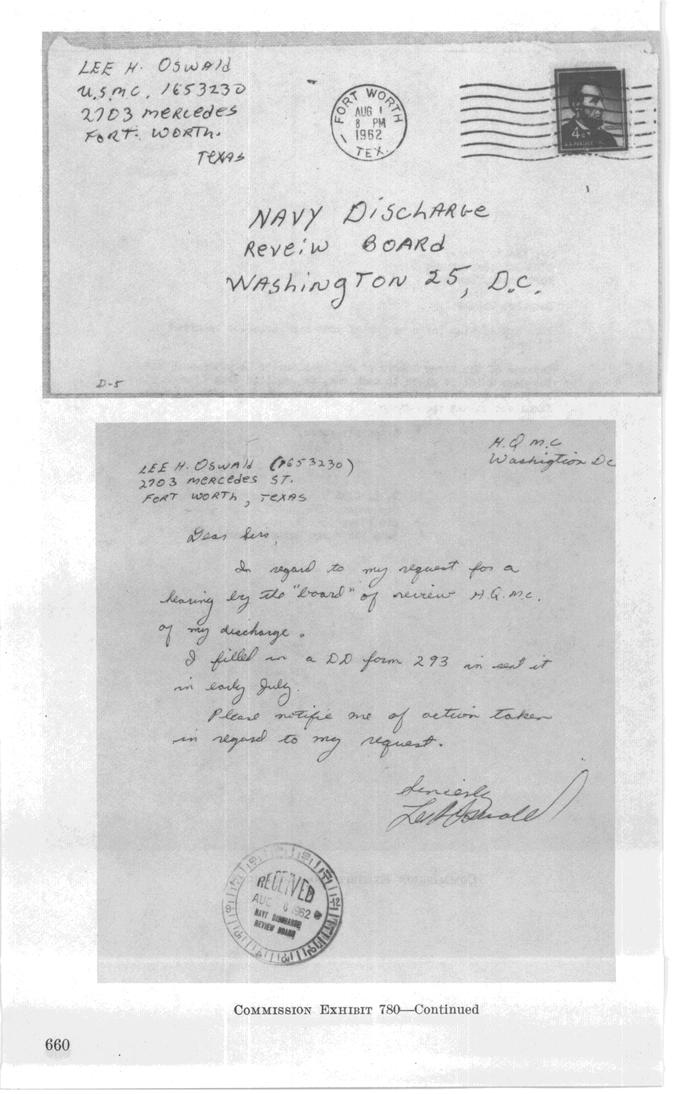 LEE H. OSWALD
U.S.M.C. 1653230
2703 MERCEDES
FORT. WORTH.
TEXAS
FORT WORTH
AUG 1
8 PM
1962
TEX.
4¢
NAVY DISCHARGE
REVEIW BOARD
WASHINGTON 25, D.C.
D-5
H.Q M.C
Washigtion DC
LEE H. OSWALD (1653230)
2703 MERCEDES ST.
FORT WORTH, TEXAS
Dear Sirs,
In regard to my request for a
hearing by the "board" of review H.Q.M.C.
of my discharge.
I filled in a DD form 293 in sent it
in early July.
Please notifie me of action taken
in regard to my request.
Sincierly
Lee H Oswald
RECEIVED
AUG 6 1962
NAVY DISCHARGE
REVIEW BOARD
COMMISSION EXHIBIT 780—Continued
660